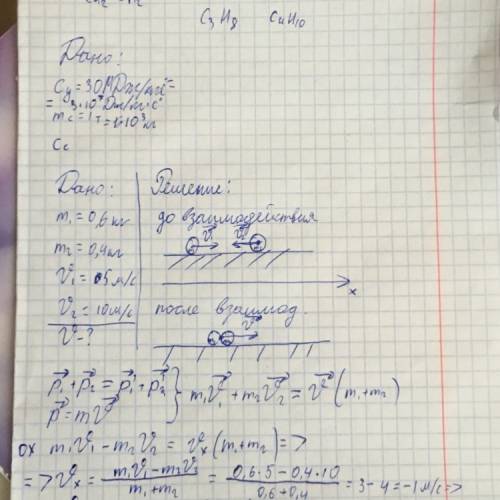 C₃H₈ C₄H₁₀
Дано:
Cy = 30 МДж/кг°C =
= 3·10⁷ Дж/кг·°C
mc = 1т = 1·10³ кг
Cc
Дано:
m₁ = 0,6 кг
m₂ = 0,4 кг
V₁ = 5 м/с
V₂ = 10 м/с
V - ?
Решение:
до взаимодействия
V₁ V₂
x
после взаимод.
V
p₁ + p₂ = p₁' + p₂' } m₁V₁ + m₂V₂ = V (m₁ + m₂)
p = mV
ox m₁V₁ - m₂V₂ = Vx (m₁ + m₂) =>
=> Vx = (m₁V₁ - m₂V₂)/(m₁ + m₂) = (0,6·5 - 0,4·10)/(0,6 + 0,4) = 3 - 4 = -1 м/с =>